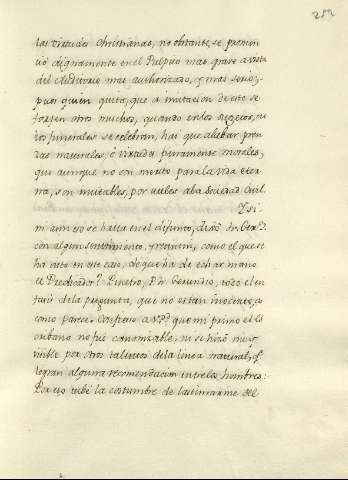 252
las virtudes christianas, no obstante, se pronun
ció dignamente en el Pulpito mas grave a vista
del Auditorio mas authorizado, y mas serio;
pues quien quita, que a imitacion de este se
formen otros muchos, quando en los sugetos, cu
ios funerales se celebran, hai que alabar pren
das naturales, ò virtudes puramente morales,
que aunque no son merito para la vida eter
na, son imitables, por utiles a la Sociedad Civil.
Y si
ni aun eso se halla en el difunto, dixo
con algun sentimiento, y retintin, como el que se
ha dicho en este caso, de que ha de echar mano
el Predicador? Quedo, Gerundio, todo el en
fasis de la pregunta, que no es tan inocente,
como parece. Confieso a V.Pd que mi primo el Es
cribano no fue canonizable, ni se hizo mui
visible por otros talentos de la linea natural, q̃
logran alguna recomendacion entre los hombres:
Por eso tube la costumbre de lastimarme del